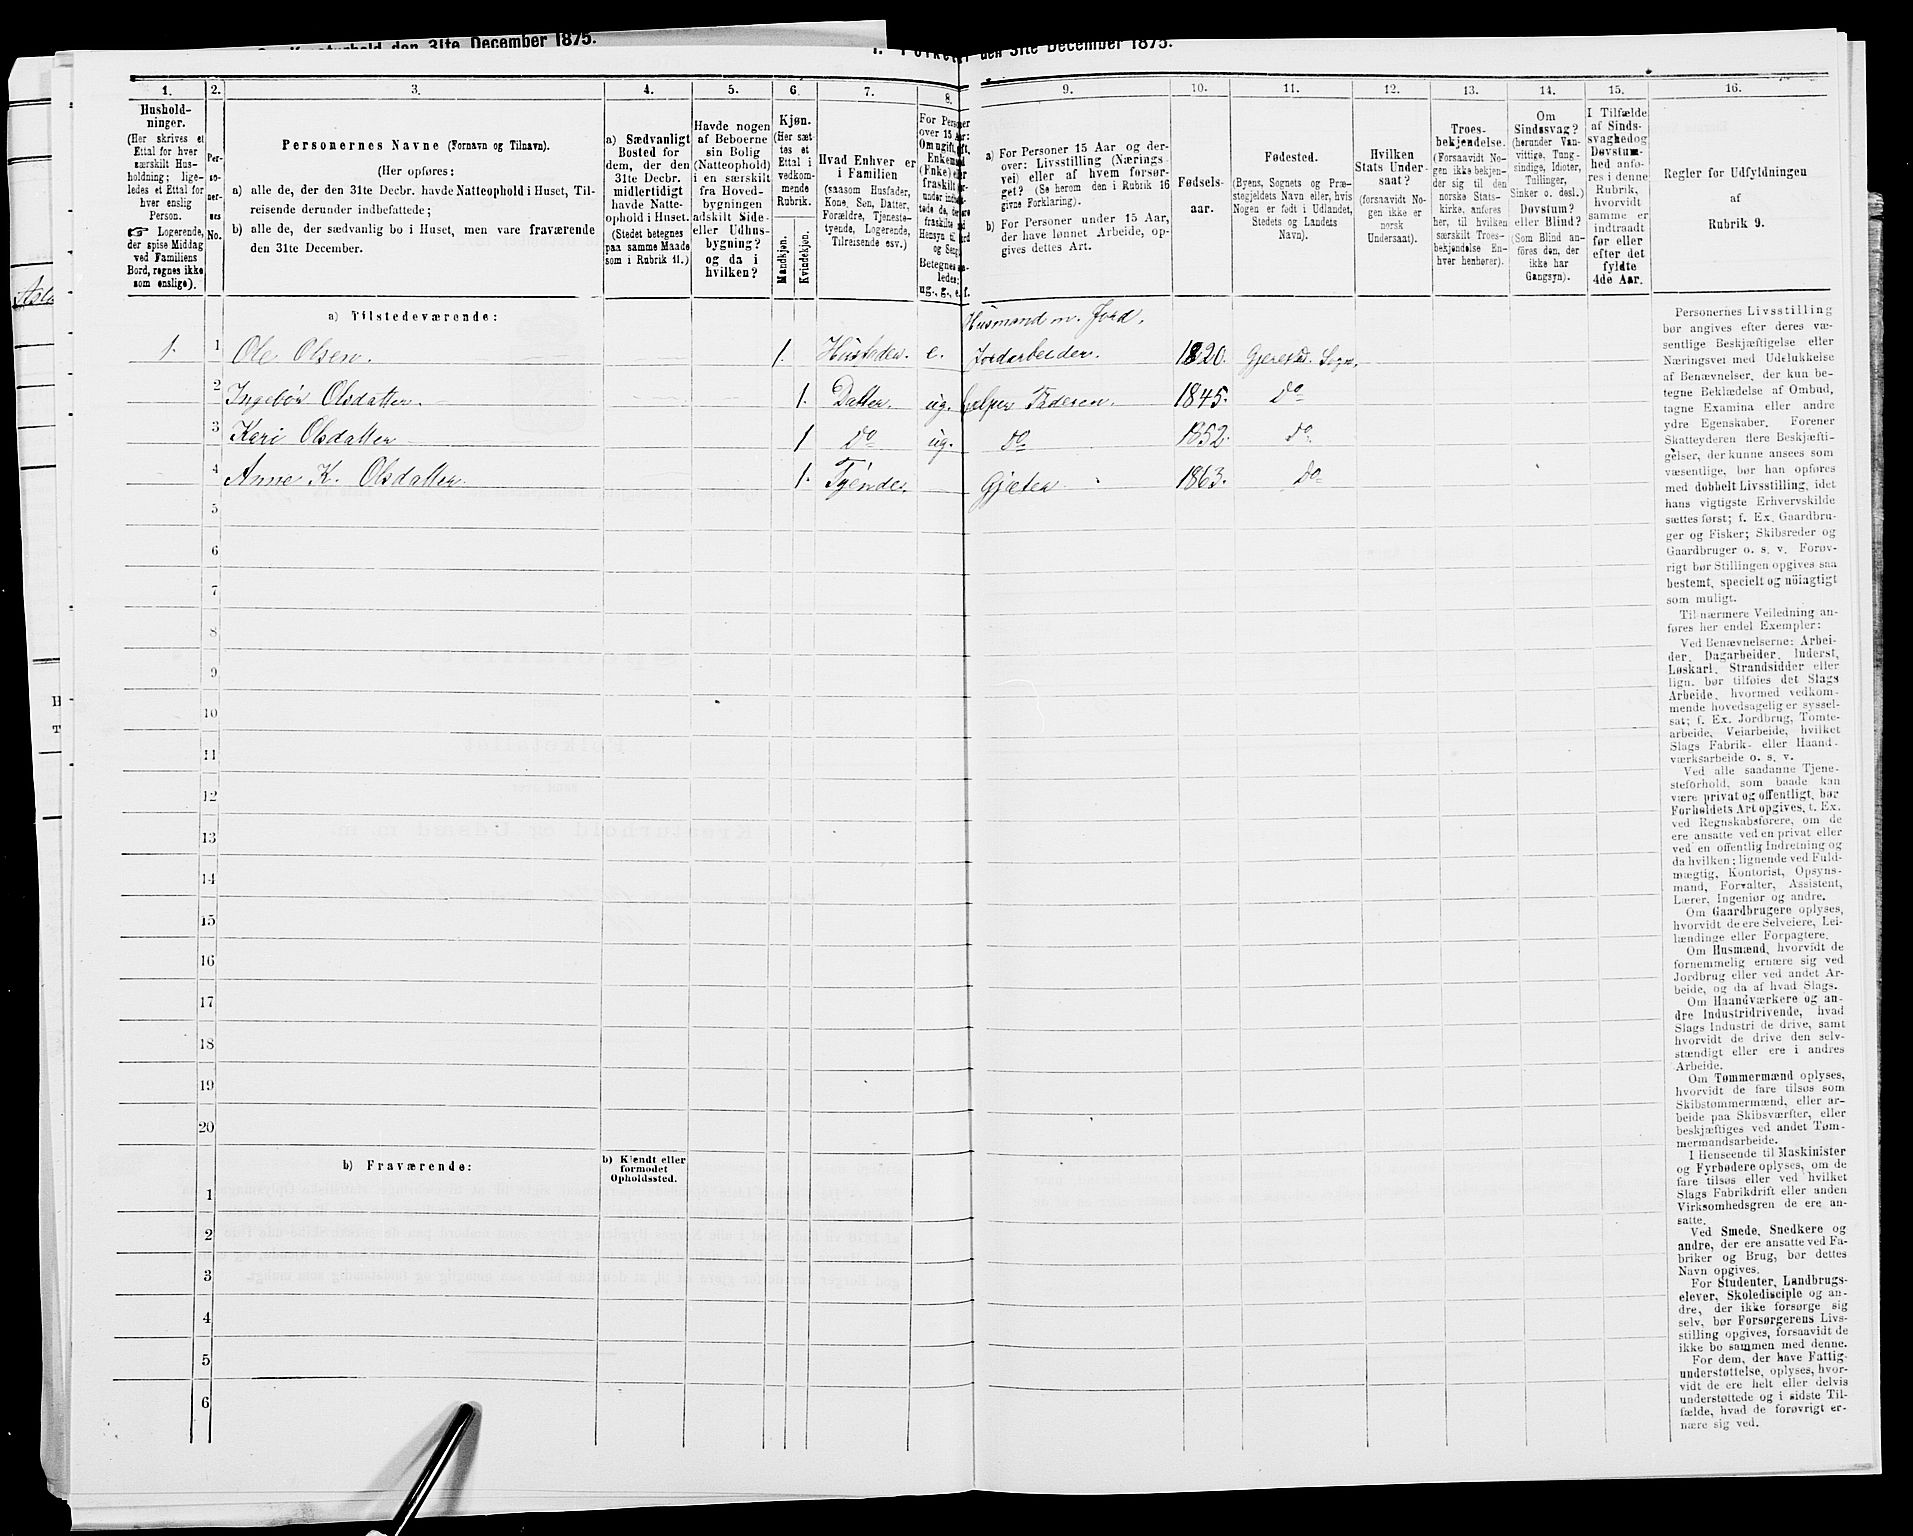 31te December 1875.
den 31te December 1875.
1.
2.
3.
4.
5.
6.
7.
8.
9.
10.
11.
12.
13.
14.
15.
16.
Hushold-
ninger.
(Her skrives et
Ettal for hver
særskilt Hus-
holdning; lige-
ledes et Ettal for
hver enslig
Person.
☞ Logerende,
der spise Middag
ved Familiens
Bord, regnes ikke
som enslige).
Per-
so-
ner-
nes
No.
Personernes Navne (Fornavn og Tilnavn).
(Her opføres:
a) alle de, der den 31te Decbr. havde Natteophold i Huset, Til-
reisende derunder indbefattede;
b) alle de, der sædvanlig bo i Huset, men vare fraværende
den 31te December.
a) Sædvanligt
Bosted for
dem, der den
31te Decbr.
midlertidigt
havde Natte-
ophold i Huset.
(Stedet betegnes
paa samme Maade
som i Rubrik 11.)
Havde nogen
af Beboerne
sin Bolig
(Natteophold)
i en særskilt
fra Hoved-
bygningen
adskilt Side-
eller Udhus-
bygning?
og da i
hvilken?
Kjøn.
(Her sæt-
tes et
Ettal i
vedkom-
mende
Rubrik.
Mandkjøn.
Kvindekjøn.
Hvad Enhver er
i Familien
(saasom Husfader,
Kone, Søn, Datter,
Forældre, Tjeneste-
tyende, Logerende,
Tilreisende osv.).
a) For Personer 15 Aar og der-
over: Livsstilling (Nærings-
vei) eller af hvem forsør-
get? (Se herom den i Rubrik 16
givne Forklaring).
b) For Personer under 15 Aar,
der have lønnet Arbeide, op-
gives dettes Art.
Fødsels-
aar.
Fødested.
(Byens, Sognets og Præ-
stegjeldets Navn eller, hvis
Nogen er født i Udlandet,
Stedets og Landets
Navn).
Hvilken
Stats Under-
saat?
(forsaavidt No-
gen ikke er
norsk
Undersaat).
Troes-
bekjendelse.
(Forsaavidt No-
gen ikke bekjen-
der sig til den
norske Stats-
kirke, anføres
her, til hvilken
særskilt Troes-
bekjendelse En-
hver henhører).
Om
Sindssvag?
(herunder Van-
vittige, Tung-
sindige, Idioter,
Tullinger,
Sinker o. desl.)
Døvstum?
eller Blind?
(Som Blind an-
føres den, der
ikke har
Gangsyn).
I Tilfælde
af Sinds-
svaghed og
Døvstum-
hed anfø-
res i denne
Rubrik,
hvorvidt
samme er
indtraadt
før eller
efter det
fyldte
4de Aar.
Regler for Udfyldningen
af
Rubrik 9.
a) Tilstedeværende:
Husmand m. Jord,
1. 1 Ole Olsen. 1. Husfader. e. Jordarbeider. 1820. Gjerestad Sogn.
2 Ingebør Olsdatter. 1. Datter. ug. hjelper Faderen. 1845. Do
3 Kari Olsdatter 1 Do ug. Do 1852. Do
4 Anne K. Olsdatter. 1. Tjende. Gjæter 1863. Do
5
6
7
8
9
10
11
12
13
14
15
16
17
18
19
20
b) Fraværende:
b) Kjendt eller
formodet
Opholdssted.
1
2
3
4
5
6
Personernes Livsstilling
bør angives efter deres væ-
sentlige Beskjæftigelse eller
Næringsvei med Udelukkelse
af Benævnelser, der kun be-
tegne Beklædelse af Ombud,
tagne Examina eller andre
ydre Egenskaber. Forener
Skatteyderen flere Beskjæfti-
gelser, der kunne ansees som
væsentlige, bør han opføres
med dobbelt Livsstilling, idet
hans vigtigste Erhvervskilde
sættes først; f. Ex. Gaardbru-
ger og Fisker; Skibsreder og
Gaardbruger o. s. v. Forøv-
rigt bør Stillingen opgives saa
bestemt, specielt og nöiagtigt
som muligt.
Til nærmere Veiledning an-
føres her endel Exempler:
Ved Benævnelserne: Arbei-
der, Dagarbeider, Inderst,
Løskarl, Strandsidder eller
lign. bør tilføies det Slags
Arbeide, hvormed vedkom-
mende hovedsagelig er syssel-
sat; f. Ex. Jordbrug, Tomte-
arbeide, Veiarbeide, hvilket
Slags Fabrik- eller Haand-
værksarbeide o. s. v.
Ved alle saadanne Tjene-
steforhold, som baade kan
være privat og offentligt, bør
Forholdets Art opgives, t. Ex.
ved Regnskabsførere, om de
ere ansatte ved en privat eller
ved en offentlig Indretning og
da hvilken; lignende ved Fuld-
mægtig, Kontorist, Opsyns-
mand, Forvalter, Assistent,
Lærer, Ingeniør og andre.
Om Gaardbrugere oplyses,
hvorvidt de ere Selveiere, Lei-
lændinge eller Forpagtere.
Om Husmænd, hvorvidt de
fornemmelig ernære sig ved
Jordbrug eller ved andet Ar-
beide, og da af hvad Slags.
Om Haandværkere og an-
dre Industridrivende, hvad
Slags Industri de drive, samt
hvorvidt de drive den selv-
stændigt eller ere i andres
Arbeide.
Om Tømmermænd oplyses,
hvorvidt de fare tilsøs som
Skibstømmermænd, eller ar-
beide paa Skibsværfter, eller
beskjæftiges ved andet Tøm-
mermandsarbeide.
I Henseende til Maskinister
og Fyrbødere oplyses, om de
fare tilsøs eller ved hvilket
Slags Fabrikdrift eller anden
Virksomhedsgren de ere an-
satte.
Ved Smede, Snedkere og
andre, der ere ansatte ved Fa-
briker og Brug, bør dettes
Navn opgives.
For Studenter, Landbrugs-
elever, Skoledisciple og an-
dre, der ikke forsørge sig
selv, bør Forsørgerens Livs-
stilling opgives, forsaavidt de
ikke bo sammen med denne.
For dem, der have Fattig-
understøttelse, oplyses, hvor-
vidt de ere helt eller delvis
understøttede og i sidste Til-
fælde, hvad de forøvrigt er-
nære sig ved.